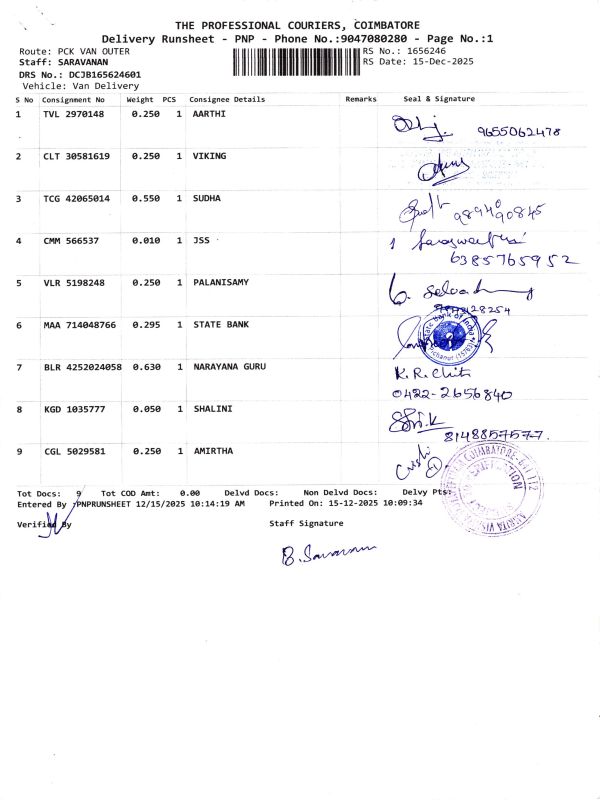 THE PROFESSIONAL COURIERS, COIMBATORE
Delivery Runsheet - PNP - Phone No.:9047080280 - Page No.:1
Route: PCK VAN OUTER
RS No.: 1656246
Staff: SARAVANAN
RS Date: 15-Dec-2025
DRS No.: DCJB165624601
Vehicle: Van Delivery
S No Consignment No Weight PCS Consignee Details Remarks Seal & Signature
1 TVL 2970148 0.250 1 AARTHI
9655062478
2 CLT 30581619 0.250 1 VIKING
3 TCG 42065014 0.550 1 SUDHA
4 CMM 566537 0.010 1 JSS
6385765952
5 VLR 5198248 0.250 1 PALANISAMY
6 MAA 714048766 0.295 1 STATE BANK
State Bank of India
7 BLR 4252024058 0.630 1 NARAYANA GURU
K.R.
0422-2656840
8 KGD 1035777 0.050 1 SHALINI
8148857577.
9 CGL 5029581 0.250 1 AMIRTHA
COIMBATORE-641 112
Tot Docs: 9 Tot COD Amt: 0.00 Delvd Docs: Non Delvd Docs: Delvy Pts:
Entered By :PNPRUNSHEET 12/15/2025 10:14:19 AM Printed On: 15-12-2025 10:09:34
Verified By Staff Signature